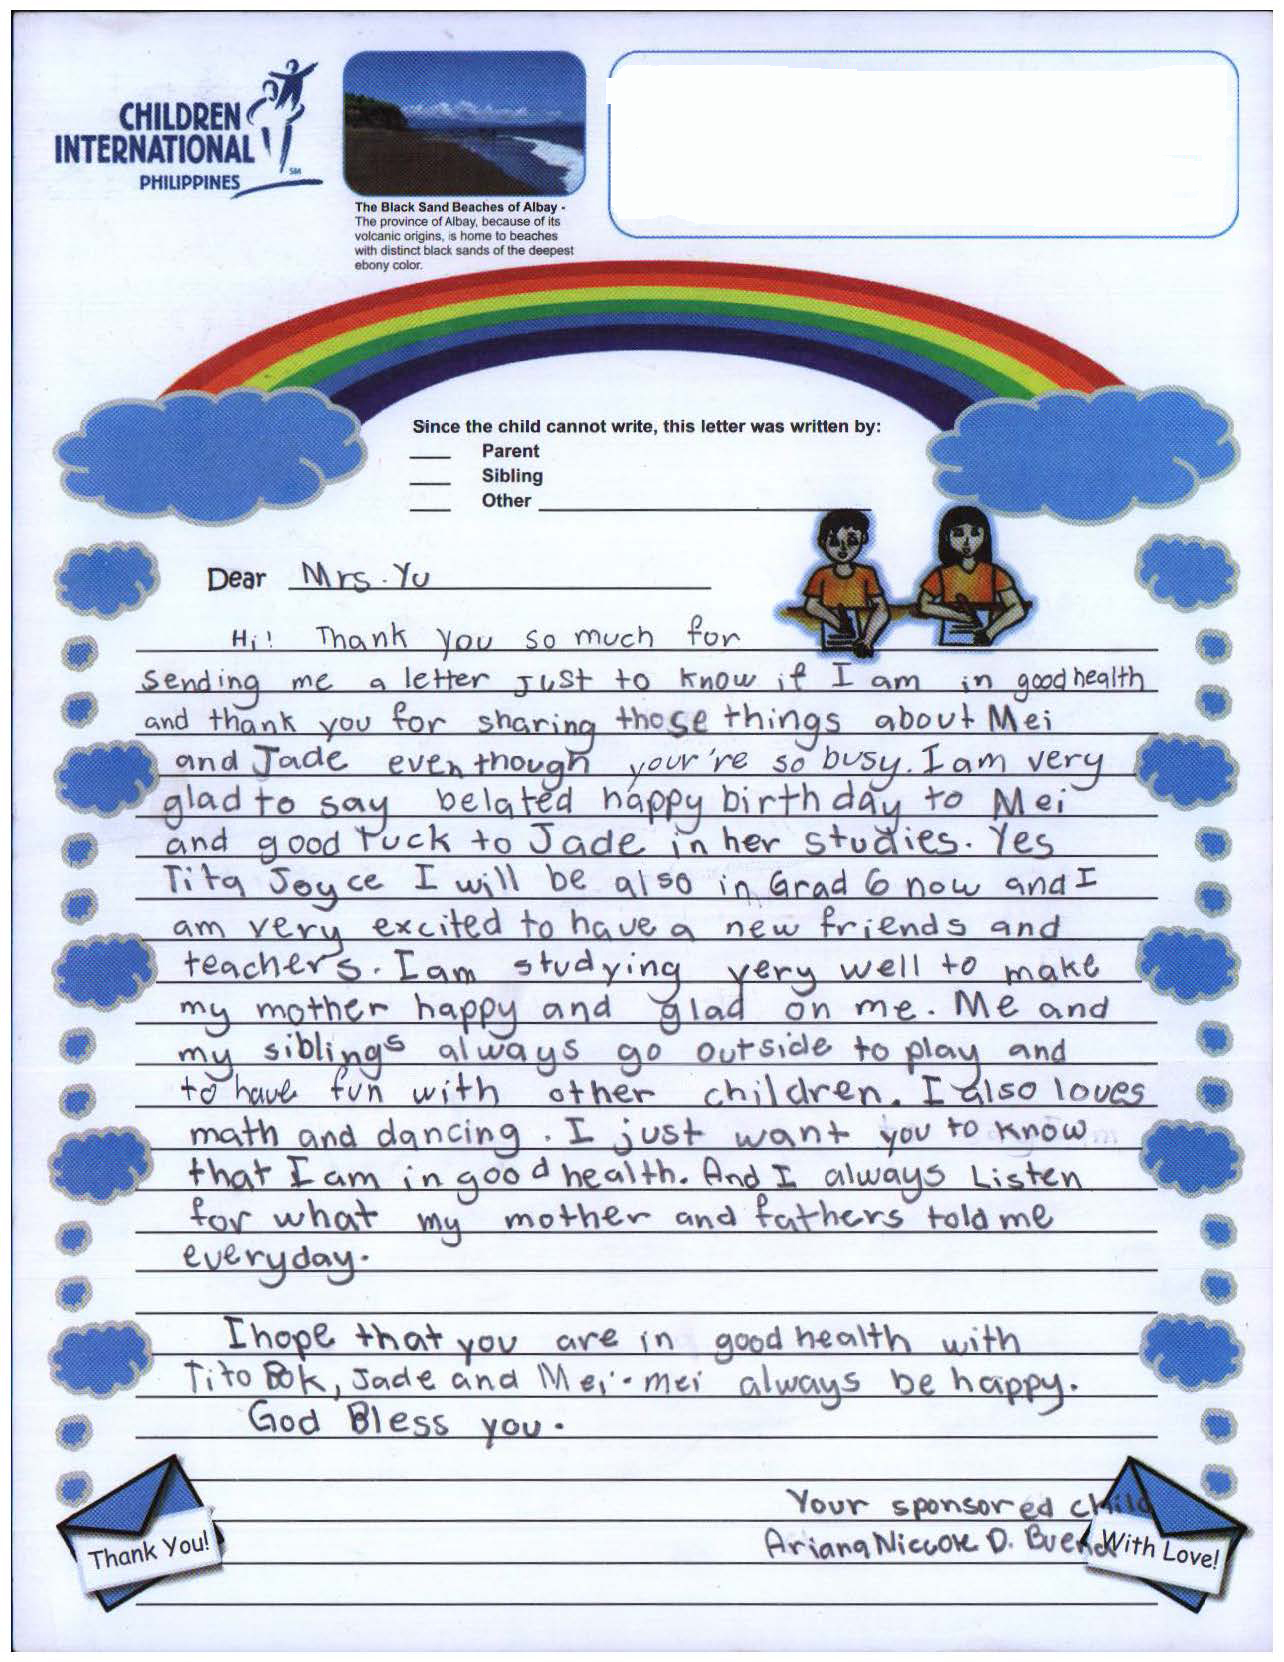 CHILDREN
INTERNATIONAL
SM
PHILIPPINES
The Black Sand Beaches of Albay -
The province of Albay, because of its
volcanic origins, is home to beaches
with distinct black sands of the deepest
ebony color.
Since the child cannot write, this letter was written by:
Parent
Sibling
Other
Dear Mrs. Yu
Hi! Thank you so much for
sending me a letter just to know if I am in good health
and thank you for sharing those things about Mei
and Jade even though your're so busy. I am very
glad to say belated happy birthday to Mei
and good luck to Jade in her studies. Yes
Tita Joyce I will be also in Grad 6 now and I
am very excited to have a new friends and
teachers. I am studying very well to make
my mother happy and glad on me. Me and
my siblings always go outside to play and
to have fun with other children. I also loves
math and dancing. I just want you to know
that I am in good health. And I always Listen
for what my mother and fathers told me
everyday.
I hope that you are in good health with
Tito Bok, Jade and Mei-mei always be happy.
God Bless you.
Your sponsored child
Ariana Niccole D. Buend
Thank You!
With Love!